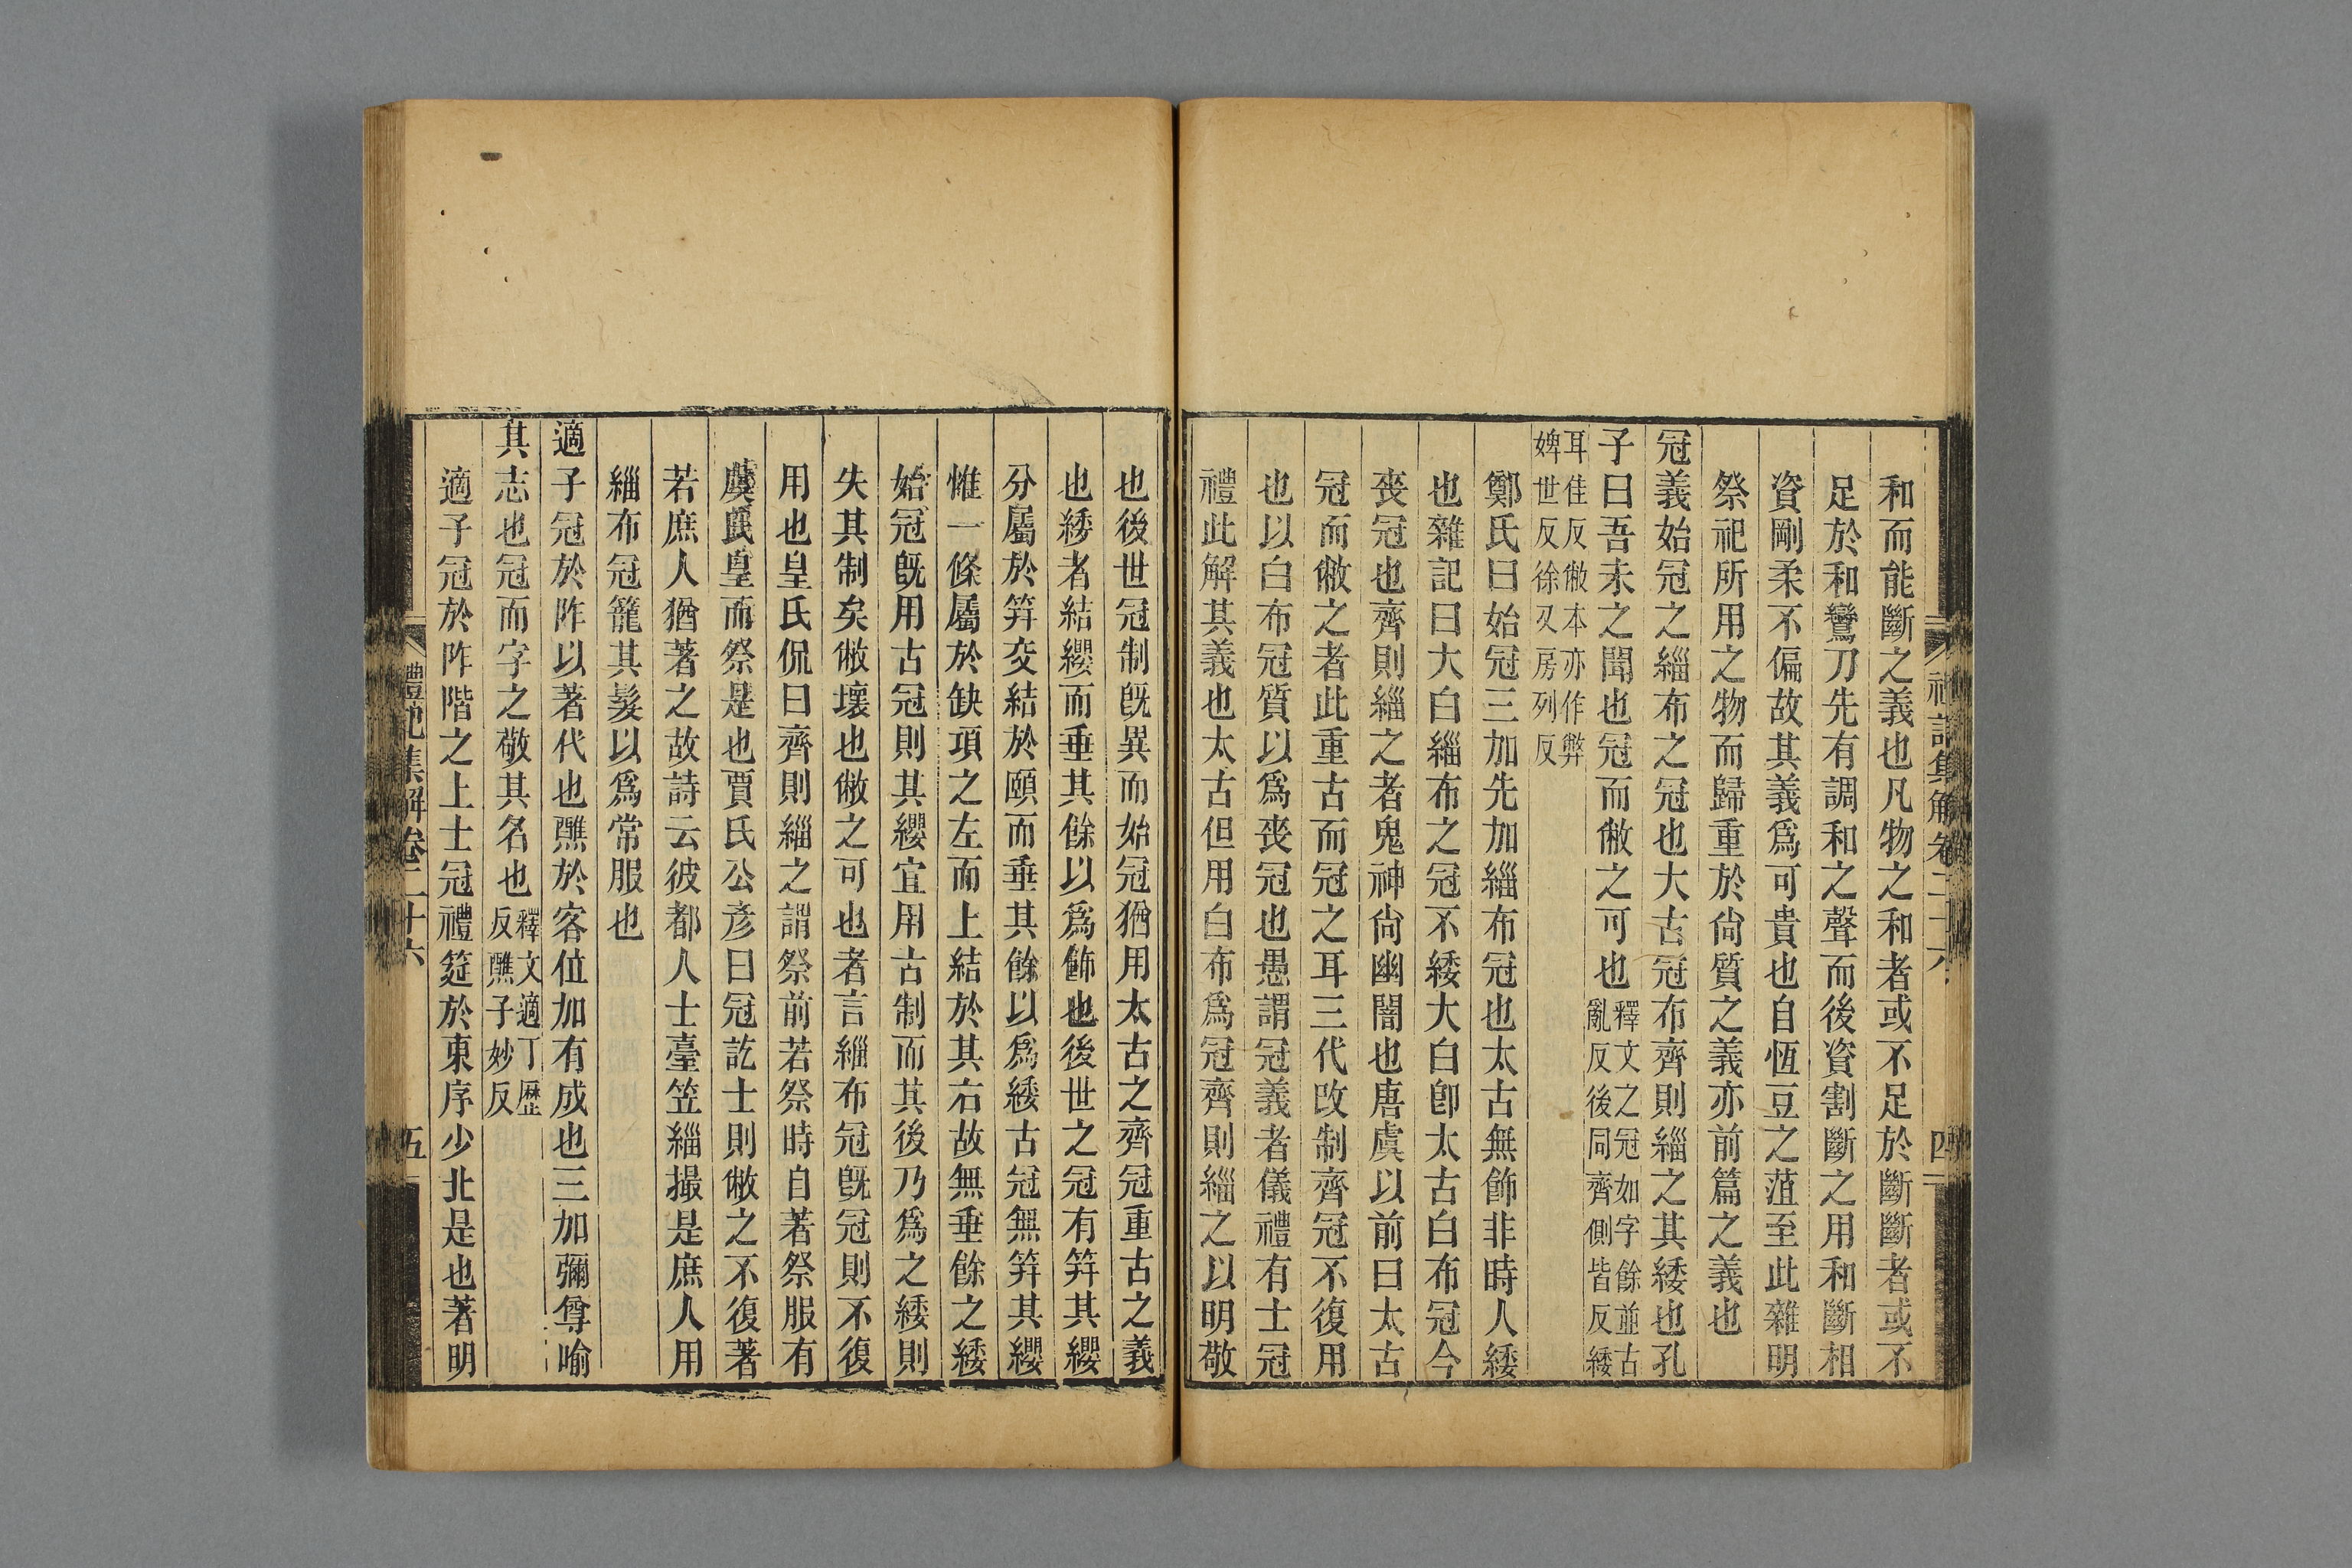 和而能斷之義也凡物之和者或不足於斷斷者或不
足於和鸞刀先有調和之聲而後資割斷之用和斷相
資剛柔不偏故其義爲可貴也自恆豆之菹至此雜明
祭祀所用之物而歸重於尙質之義亦前篇之義也
冠義始冠之緇布之冠也大古冠布齊則緇之其緌也孔
子曰吾未之聞也冠而敝之可也釋文之冠如字餘並古亂反後同齊側皆反緌
耳佳反敝本亦作弊婢世反徐又房列反
鄭氏曰始冠三加先加緇布冠也太古無飾非時人緌
也雜記曰大白緇布之冠不緌大白卽太古白布冠今
喪冠也齊則緇之者鬼神尙幽闇也唐虞以前曰太古
冠而敝之者此重古而冠之耳三代改制齊冠不復用
也以白布冠質以爲喪冠也愚謂冠義者儀禮有士冠
禮此解其義也太古但用白布爲冠齊則緇之以明敬
也後世冠制旣異而始冠猶用太古之齊冠重古之義
也緌者結纓而垂其餘以爲飾也後世之冠有笄其纓
分屬於笄交結於頤而垂其餘以爲緌古冠無笄其纓
惟一條屬於缺項之左而上結於其右故無垂餘之緌
始冠旣用古冠則其纓宜用古制而其後乃爲之緌則
失其制矣敝壞也敝之可也者言緇布冠旣冠則不復
用也皇氏侃曰齊則緇之謂祭前若祭時自著祭服有
虞氏皇而祭是也賈氏公彥曰冠訖士則敝之不復著
若庶人猶著之故詩云彼都人士臺笠緇撮是庶人用
緇布冠籠其髮以爲常服也
適子冠於阼以著代也醮於客位加有成也三加彌尊喻
其志也冠而字之敬其名也釋文適丁歷反醮子妙反
適子冠於阼階之上士冠禮筵於東序少北是也著明
禮記集解卷二十六
四
禮記集解卷二十六
五